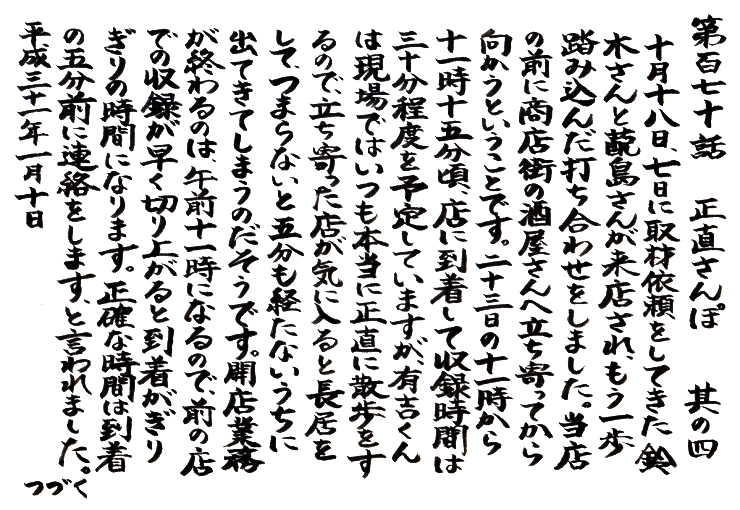 第百七十話　正直さんぽ　其の四
十月十八日、七日に取材依頼をしてきた鈴
木さんと蓜島さんが来店され、もう一歩
踏み込んだ打ち合わせをしました。当店
の前に商店街の酒屋さんへ立ち寄ってから
向かうということです。二十三日の十一時から
十一時十五分頃、店に到着して収録時間は
三十分程度を予定していますが、有吉くん
は現場ではいつも本当に正直に散歩をす
るので、立ち寄った店が気に入ると長居を
して、つまらないと五分も経たないうちに
出てきてしまうのだそうです。開店業務
が終わるのは、午前十一時になるので、前の店
での収録が早く切り上がると到着がぎり
ぎりの時間になります。正確な時間は到着
の五分前に連絡をします、と言われました。
平成三十一年一月十日
つづく